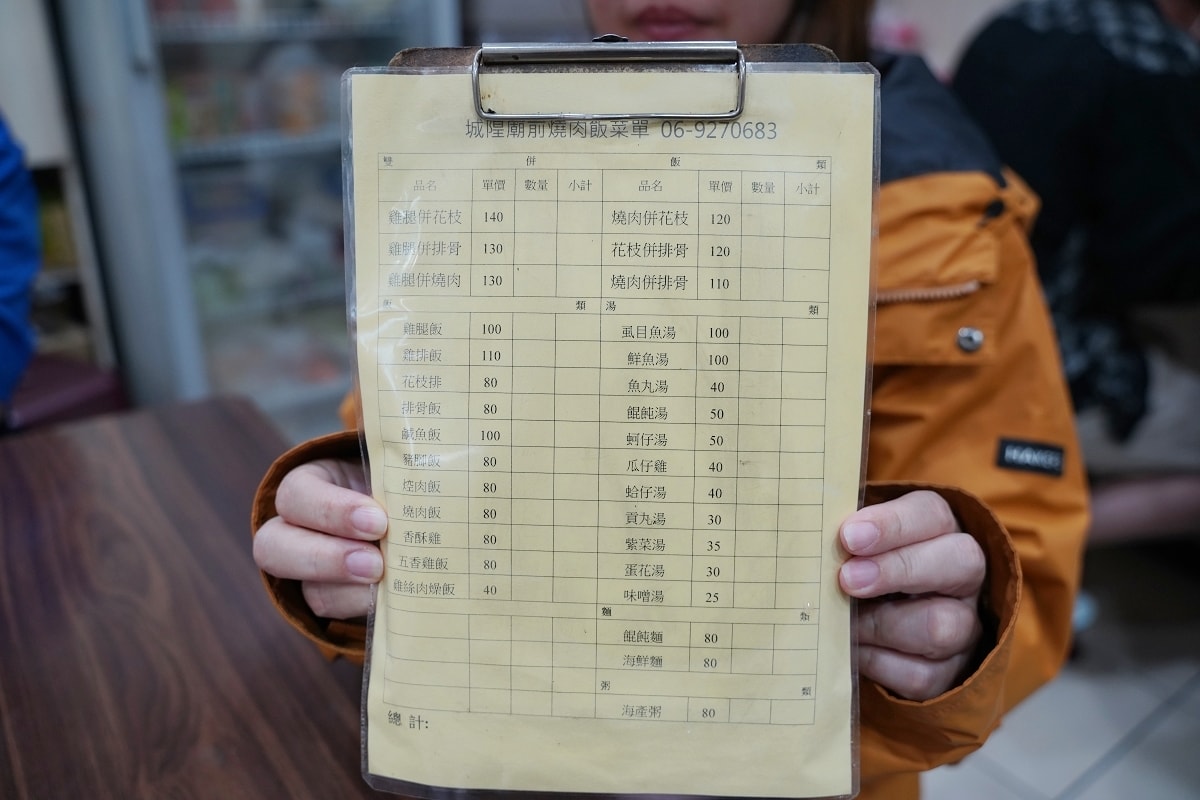 城隍廟前燒肉飯菜單 06-9270683
雙 併 飯 類
品名 單價 數量 小計 品名 單價 數量 小計
雞腿併花枝 140 燒肉併花枝 120
雞腿併排骨 130 花枝併排骨 120
雞腿併燒肉 130 燒肉併排骨 110
飯 類 湯 類
雞腿飯 100 虱目魚湯 100
雞排飯 110 鮮魚湯 100
花枝排 80 魚丸湯 40
排骨飯 80 餛飩湯 50
鹹魚飯 100 蚵仔湯 50
豬腳飯 80 瓜仔雞 40
焢肉飯 80 蛤仔湯 40
燒肉飯 80 貢丸湯 30
香酥雞 80 紫菜湯 35
五香雞飯 80 蛋花湯 30
雞絲肉燥飯 40 味噌湯 25
麵 類
餛飩麵 80
海鮮麵 80
粥 類
海產粥 80
總 計: